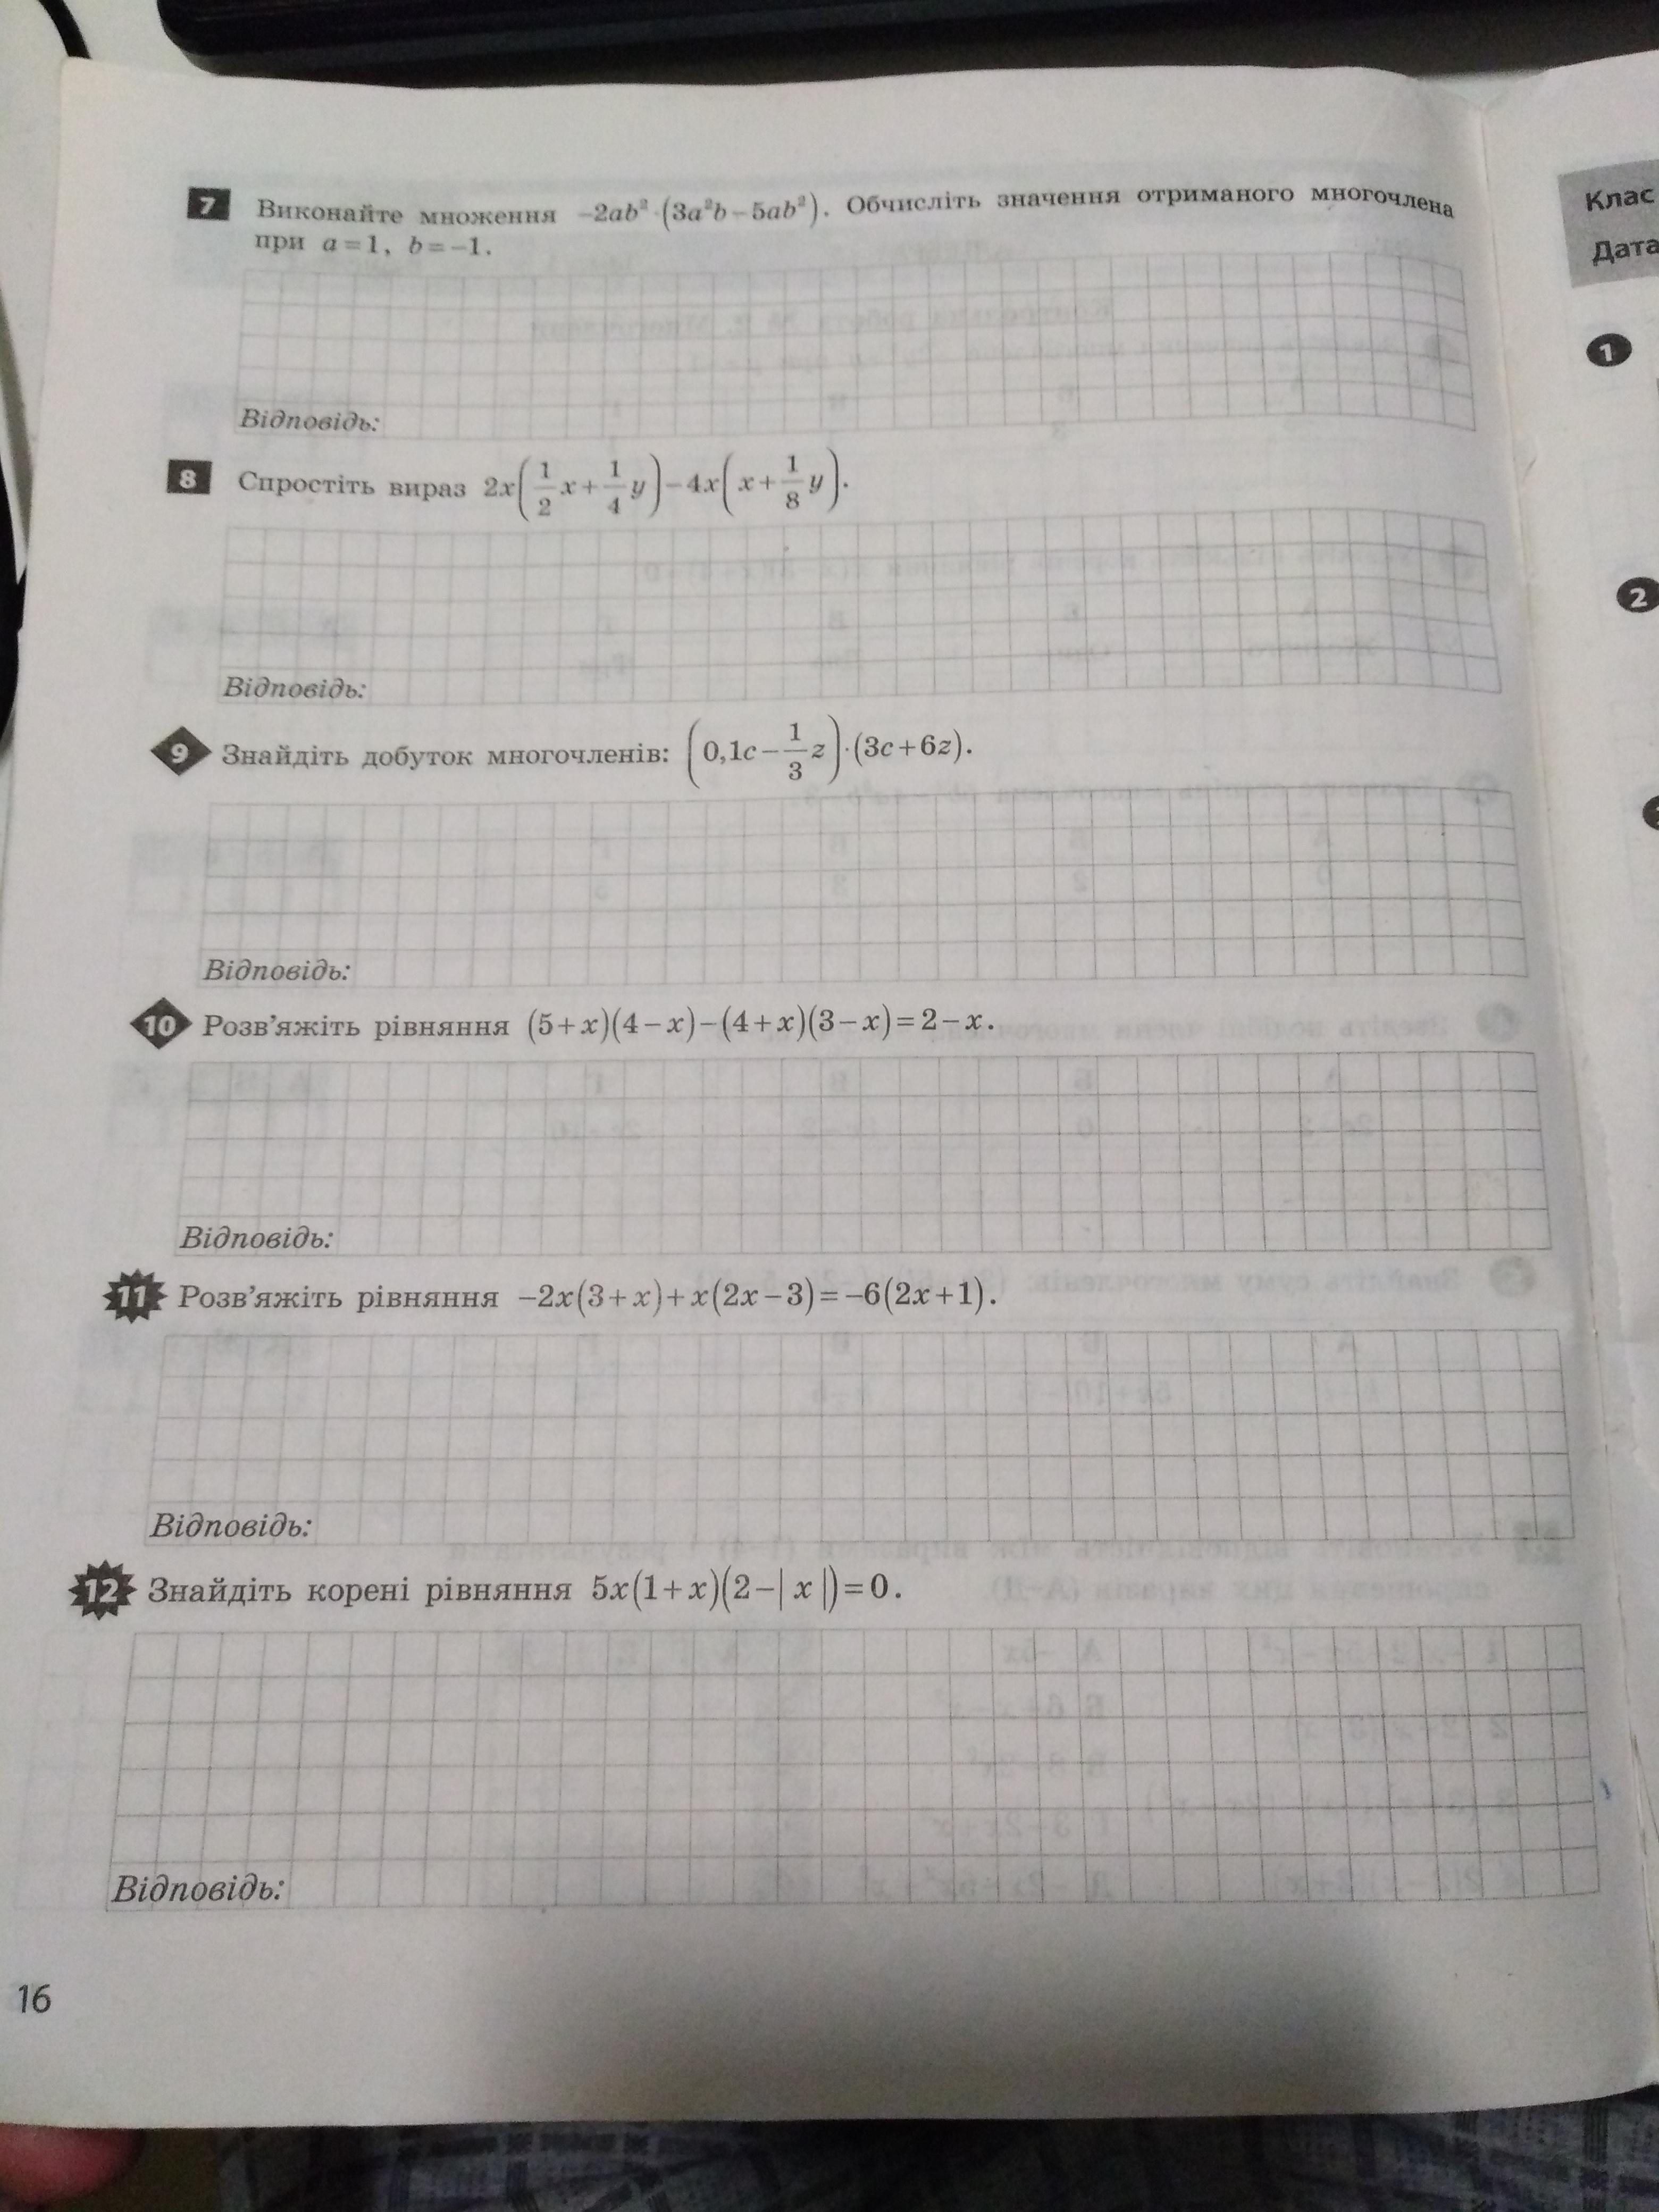 7 Виконайте множення −2ab²·(3a²b−5ab²). Обчисліть значення отриманого многочлена
при a=1, b=−1.
Відповідь:
8 Спростіть вираз 2x(1/2x+1/4y)−4x(x+1/8y).
Відповідь:
9 Знайдіть добуток многочленів: (0,1c−1/3z)·(3c+6z).
Відповідь:
10 Розв’яжіть рівняння (5+x)(4−x)−(4+x)(3−x)=2−x.
Відповідь:
11 Розв’яжіть рівняння −2x(3+x)+x(2x−3)=−6(2x+1).
Відповідь:
12 Знайдіть корені рівняння 5x(1+x)(2−|x|)=0.
Відповідь:
16
Клас
Дата
1
2